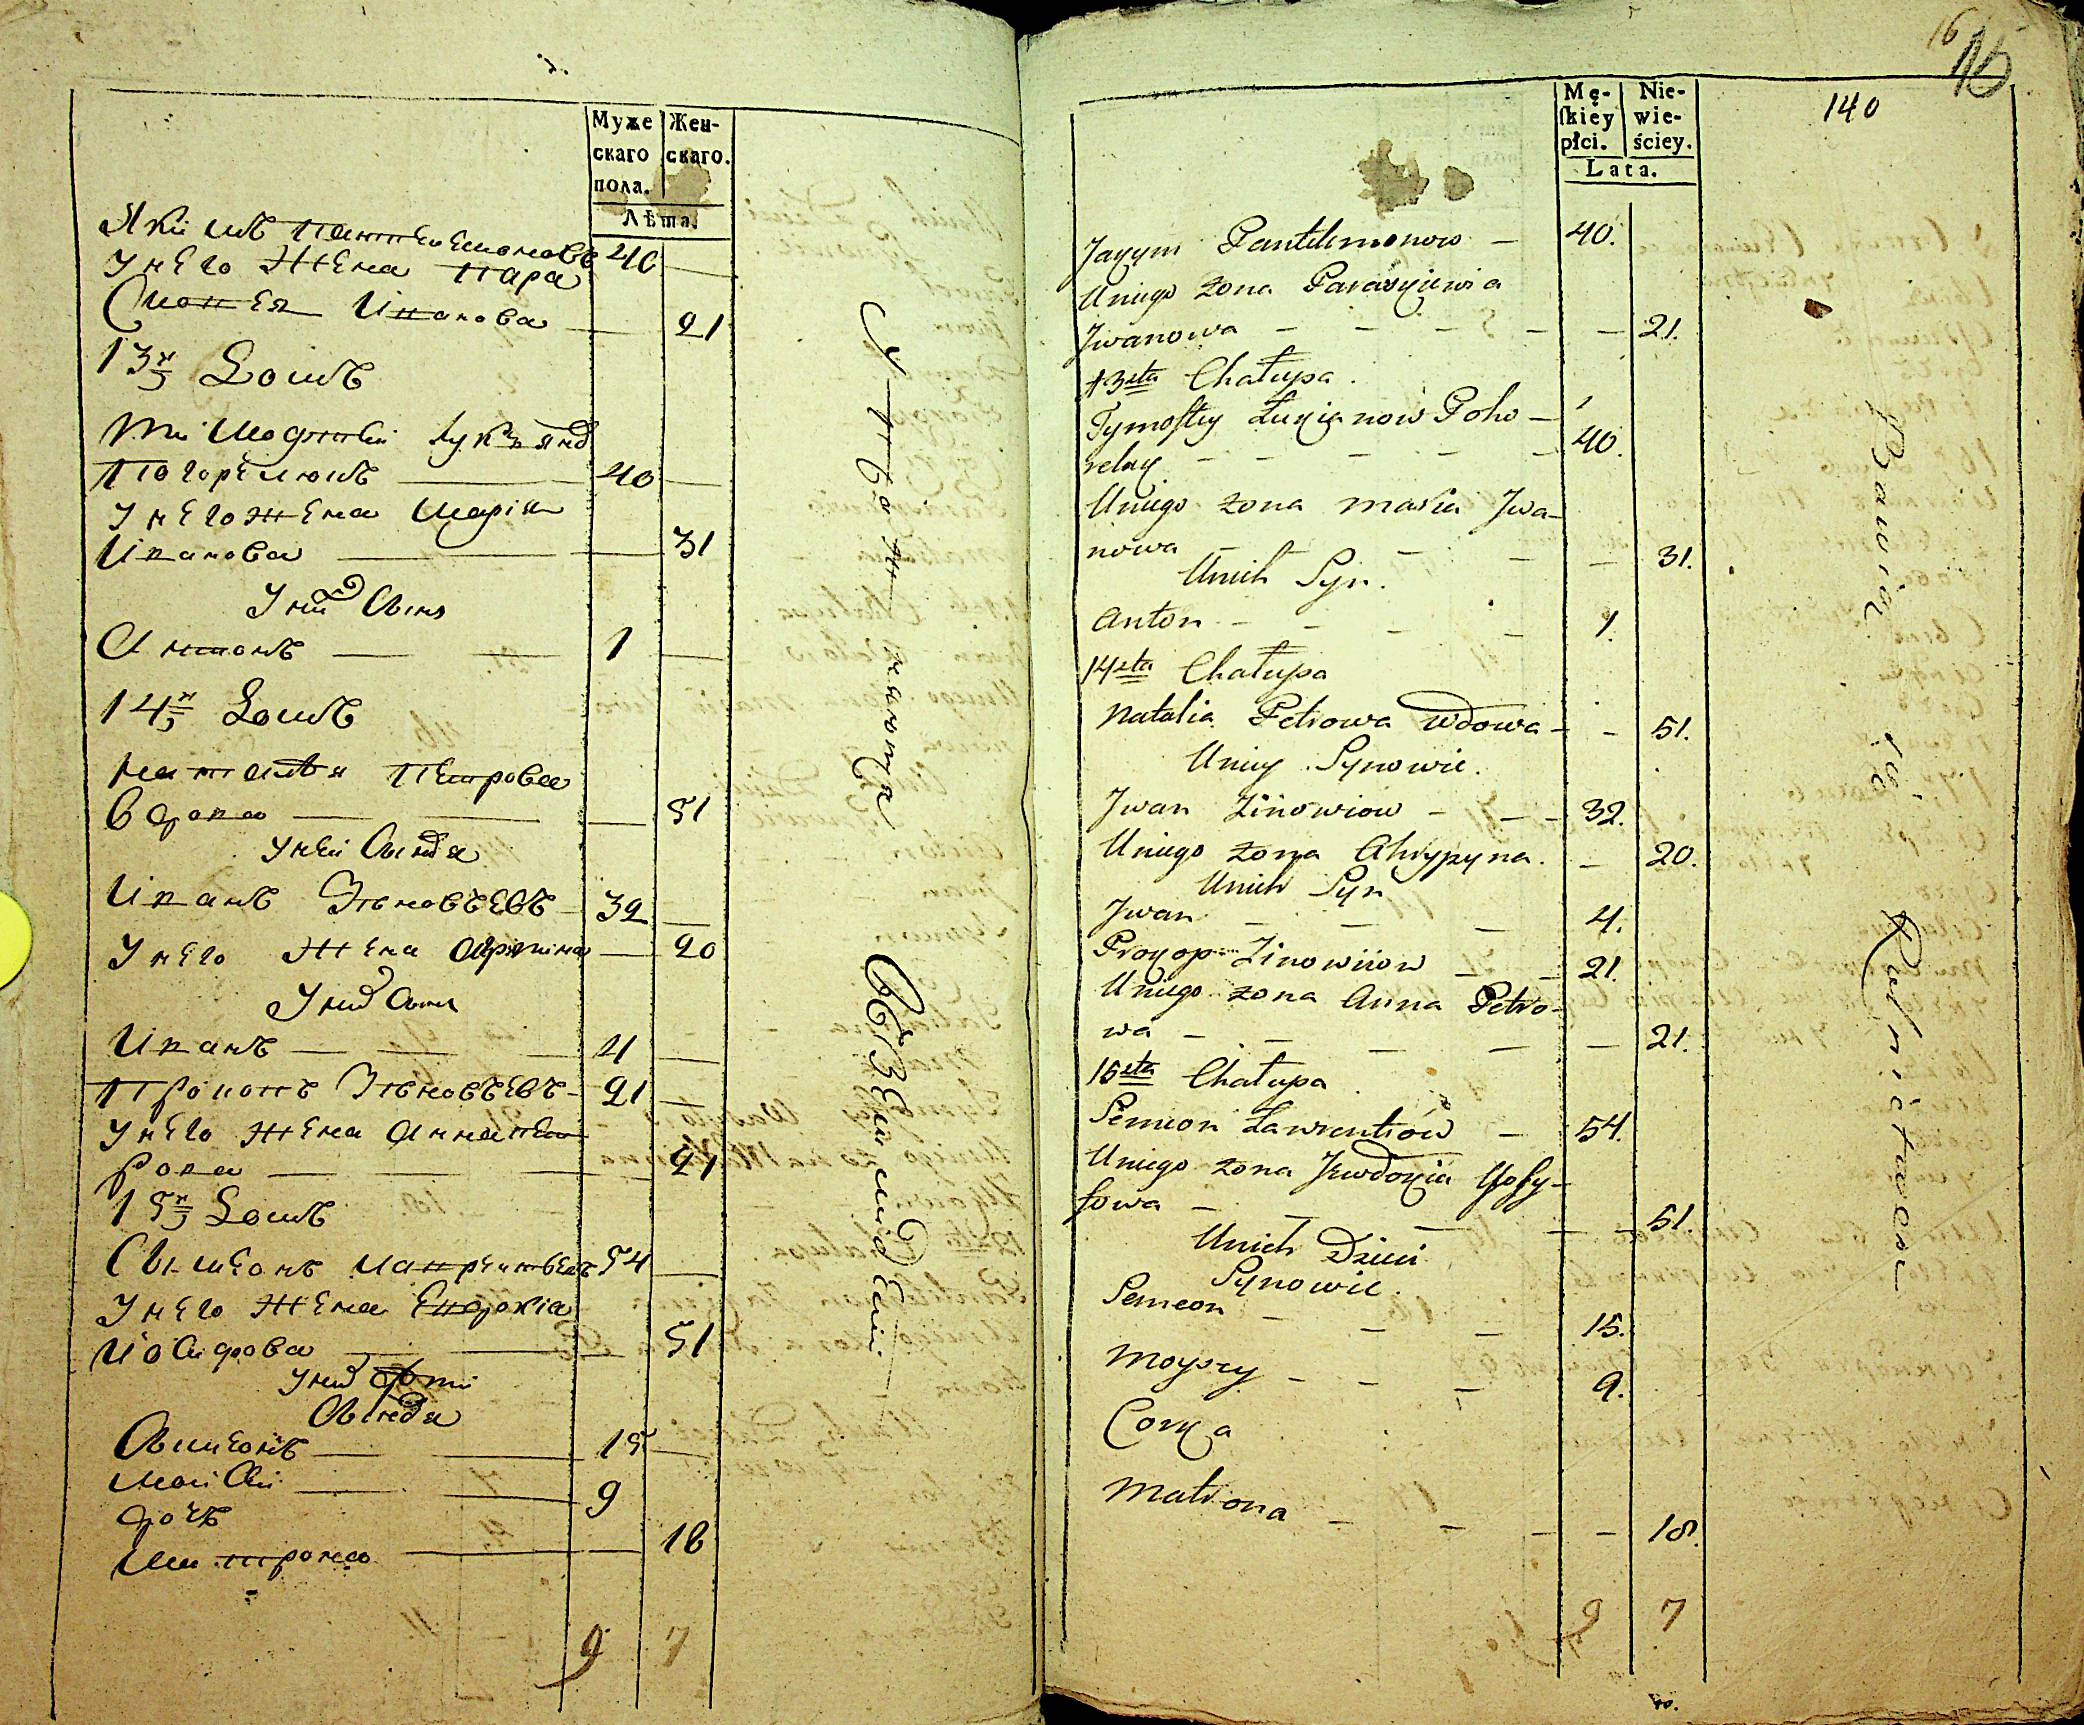 Муже
скаго
пола.
Жен-
скаго.
Лѣта.
Якимъ Пантелемоновъ 40
У него Жена Пара
Сковея Иванова — 21
13й Домъ
Тимофтѣй Лукьяновъ
Погорелюкъ — 40
У него жена Марія
Иванова — 31
У них Сынъ
Антонъ — 1
14й Домъ
Наталья Петрова
вдова — 51
У неи Сыновя
Иванъ Зѣновъевъ — 32
У него Жена Агрипина — 20
У них Сынъ
Иванъ — 4
Прокопъ Зѣновъевъ — 21
У него жена Анна Пет
рова — 21
15й Домъ
Сымеонъ Лаврентьевъ 54
У него Жена Евдокія
Иосифова — 51
У них дѣти
Сыновя
Сымеонъ — 15
Моисѣй — 9
дочь
Матрона — 18
9 7
Mę-
ſkiéy
płci.
Nie-
wie-
ściey.
Lata.
16
15
140
Jakym Pantelimonow — 40.
U niego żona Paraskiewia
Jwanowa — 21.
13sta Chałupa.
Tymoftey Łukianow Poho-
relak — 40.
U niego żona Maria Jwa-
nowa — 31.
U nich Syn.
Anton — 1.
14sta Chałupa
Natalia Petrowa Wdowa — 51.
U niey Synowie.
Jwan Zinowiow — 32.
U niego żona Ahrypyna. — 20.
U nich Syn
Jwan — 4.
Prokop Zinowiiow — 21.
U niego żona Anna Petro-
wa — 21.
15sta Chałupa
Semeon Ławrentiów — 54.
U niego żona Jewdokia
fowa — 51.
U nich Dzieci
Synowie.
Semeon — 15.
Moysey — 9.
Corka
Matrona — 18.
9 7
Bawią się Rolnictwem